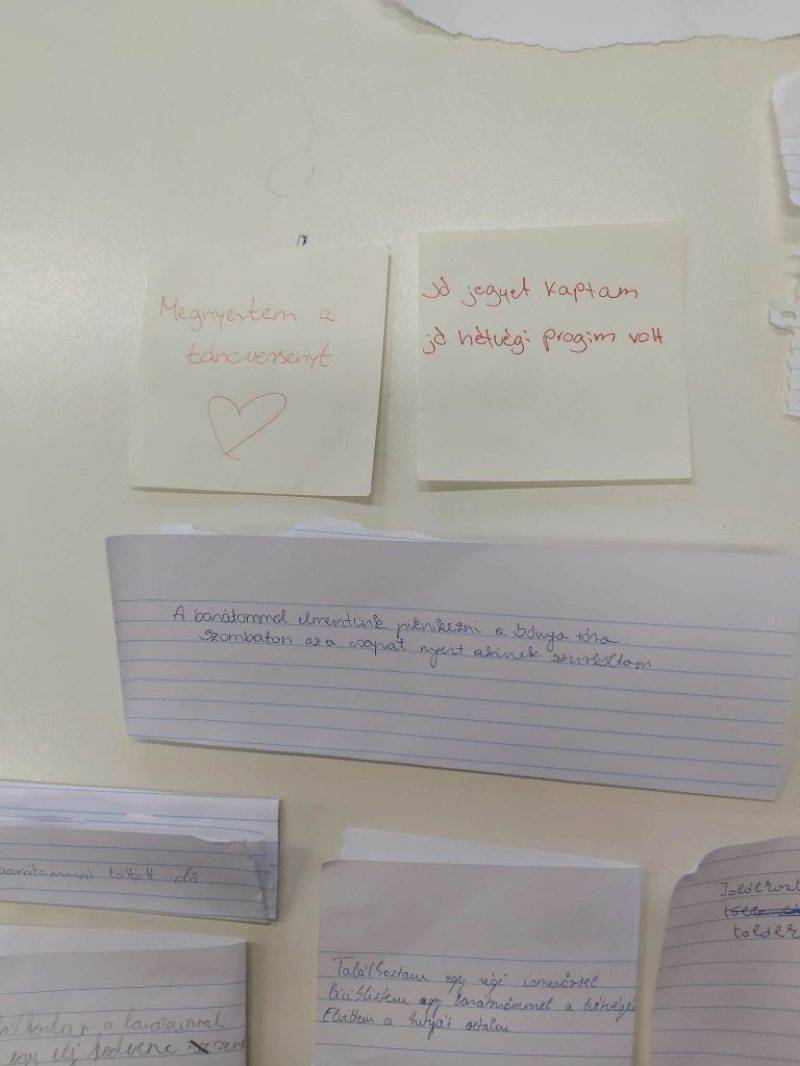 Megnyertem a
táncversenyt
Jó jegyet kaptam
jó hétvégi progim volt
A barátommal elmentünk piknikezni a Bánya tóra.
Szombaton az a csapat nyert akinek szurkoltam
barátammal töltött idő
Találkoztam egy régi ismerőssel
Bicikliztem egy barátnőmmel a hétvégé
Elvittem a kutyát sétálni
találkoztam a barátaimmal
egy új kedvenc zene